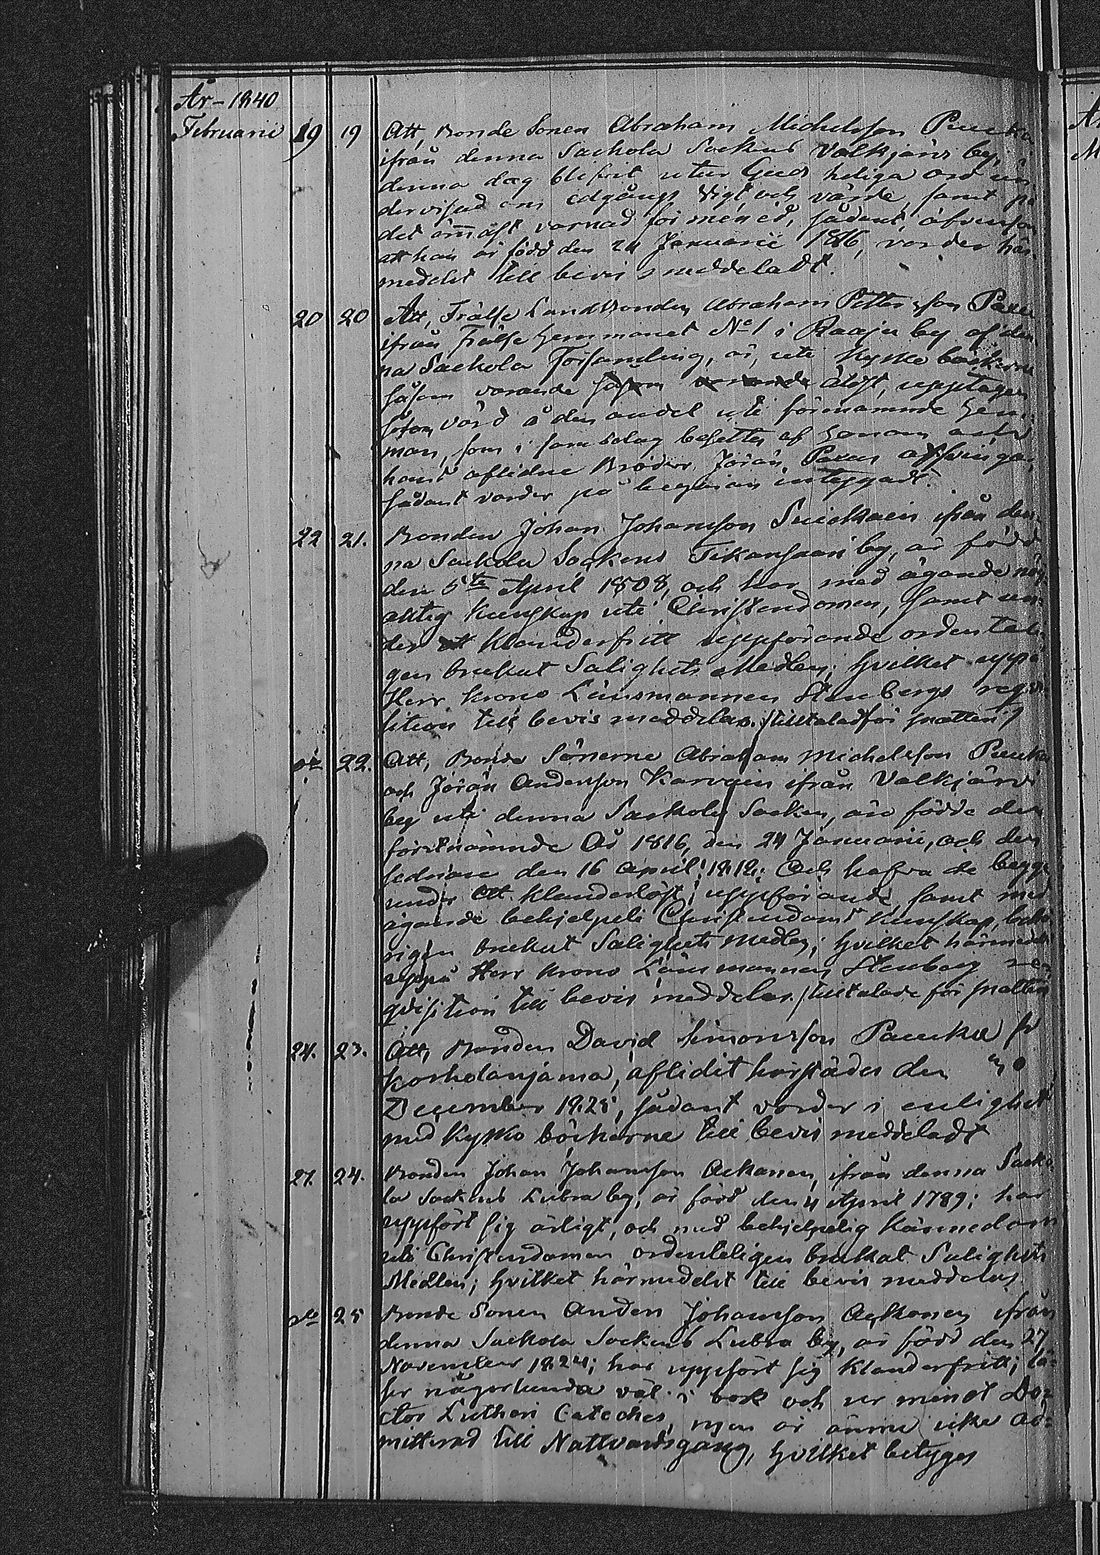 År 1840
Februarii 19 19 Att, Bonde Sonen Abraham Michelsson Puukka
ifrån denna Sackola Sockens Valkjärvi by,
denna dag blifvit utur Guds heliga ord un-
dervisad om edgångs vigt och värde, samt på
det ömmast varnad för mened, sådant, äfvensom
att han är född den 24 Januarii 1816, varder här-
medelst till bevis meddeladt.
20 20 Att, Frälse Landbonden Abraham Pettersson
ifrån Frälse hemmanet No 1 i Raaju by af den-
na Sackola Församling, är, uti Kyrko böckerna
såsom varande såsom varande äldst, upptagen
såsom värd å den andel uti förnämnde hem-
man, som i samt bolag besittes af honom och
hans aflidne Broder Jöran arfvingar,
sådant varder på begäran intygadt.
22 21. Bonden Johan Johansson Suikkain ifrån den-
na Sackola Sockens Tikansaari by, är född
den 5te April 1808, och har med ägande nöj-
aktig kunskap uti Christendomen, samt un-
der ett klanderfritt uppförande ordenteli-
gen brukat Salighets Medlen; hvilket uppå
Herr Krono Länsmannen Stenbergs requi-
sition till bevis meddelas. /tilltalad för snatteri/
dto 22. Att, Bonde Sönerne Abraham Michelsson Puukka
och Jöran Andersson Karvain ifrån Valkjärvi
by uti denna Sackola Socken, äro födde den
förstnämnde År 1816, den 24 Januarii, och den
sednare den 16 April 1818; Och hafva de begge
under ett klanderlöst uppförande, samt med
ägande behjelpeli Christendoms Kunskap,
brukat Salighets Medlen; hvilket härmedelst
uppå Herr Krono Länsmannen Stenberg re-
qvisition till bevis meddelas. /tilltalade för snatteri
24. 23. Att, Bonden David Simonsson Puukka fr
Korholanjama, aflidit härstädes den
December 1825, sådant varder i enlighet
med Kyrko böckerne till bevis meddeladt
27. 24. Bonden Johan Johansson Ackanen, ifrån denna Sacko-
la Sockens Lubra by, är född den 4 April 1789; har
uppfört sig ärligt, och med behjelpelig kännedom
uti Christendomen ordenteligen brukat Salighets
Medlen; hvilket härmedelst till bevis meddelas
dto 25 Bonde Sonen Anders Johansson Ackanen ifrån
denna Sackola Sockens Lubra by, är född den 27
November 1824; har uppfört sig klanderfritt; lä-
ser någorlunda väl i bok och ur minnet Do-
ctor Lutheri Cateches, men är ännu icke ad-
mitterad till Nattvardsgång, hvilket betygas